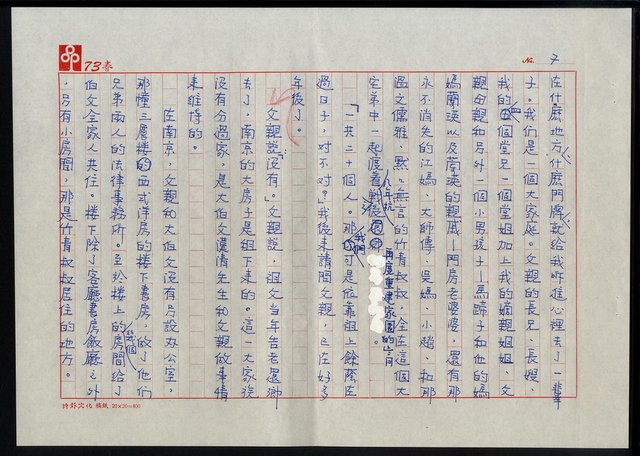 73春
No. 7
在什麼地方什麼門牌就給我所進心裡去了一輩
子。我們是一個大家庭。父親的長兄、長嫂、
我的四個堂兄一個堂姐加上我的嫡親姐姐、父
親母親和另外一個小男孩子—馬蹄子和他的媽
媽蘭瑛以及蘭瑛的親戚—門房老婆婆，還有那
永不消失的江媽、大師傅、吳媽、小趙、和那
溫文儒雅，默默無言的竹青叔叔，全在這個大
宅第中一起度着八年抗戰後再度重建家園的歲月
「一共二十個人。那我們可是依靠祖上餘蔭在
過日子，對不對？」我後來請問父親，已在好多
年後了。
父親說：「沒有。」父親說，祖父當年告老還鄉
去了，南京的大房子是租下來的。這一大家族
沒有分過家，是大伯父漢清先生和父親做事情
來維持的。
在南京，父親和大伯父沒有另設辦公室，
那幢三層樓的西式洋房的樓下書房，做了他們
兄弟兩人的法律事務所。至於樓上的幾個房間給了
伯父全家人共住。樓下除了客廳書房飯廳之外
，另有小房間，那是竹青叔叔居住的地方。
時報文化 稿紙 20×20=400